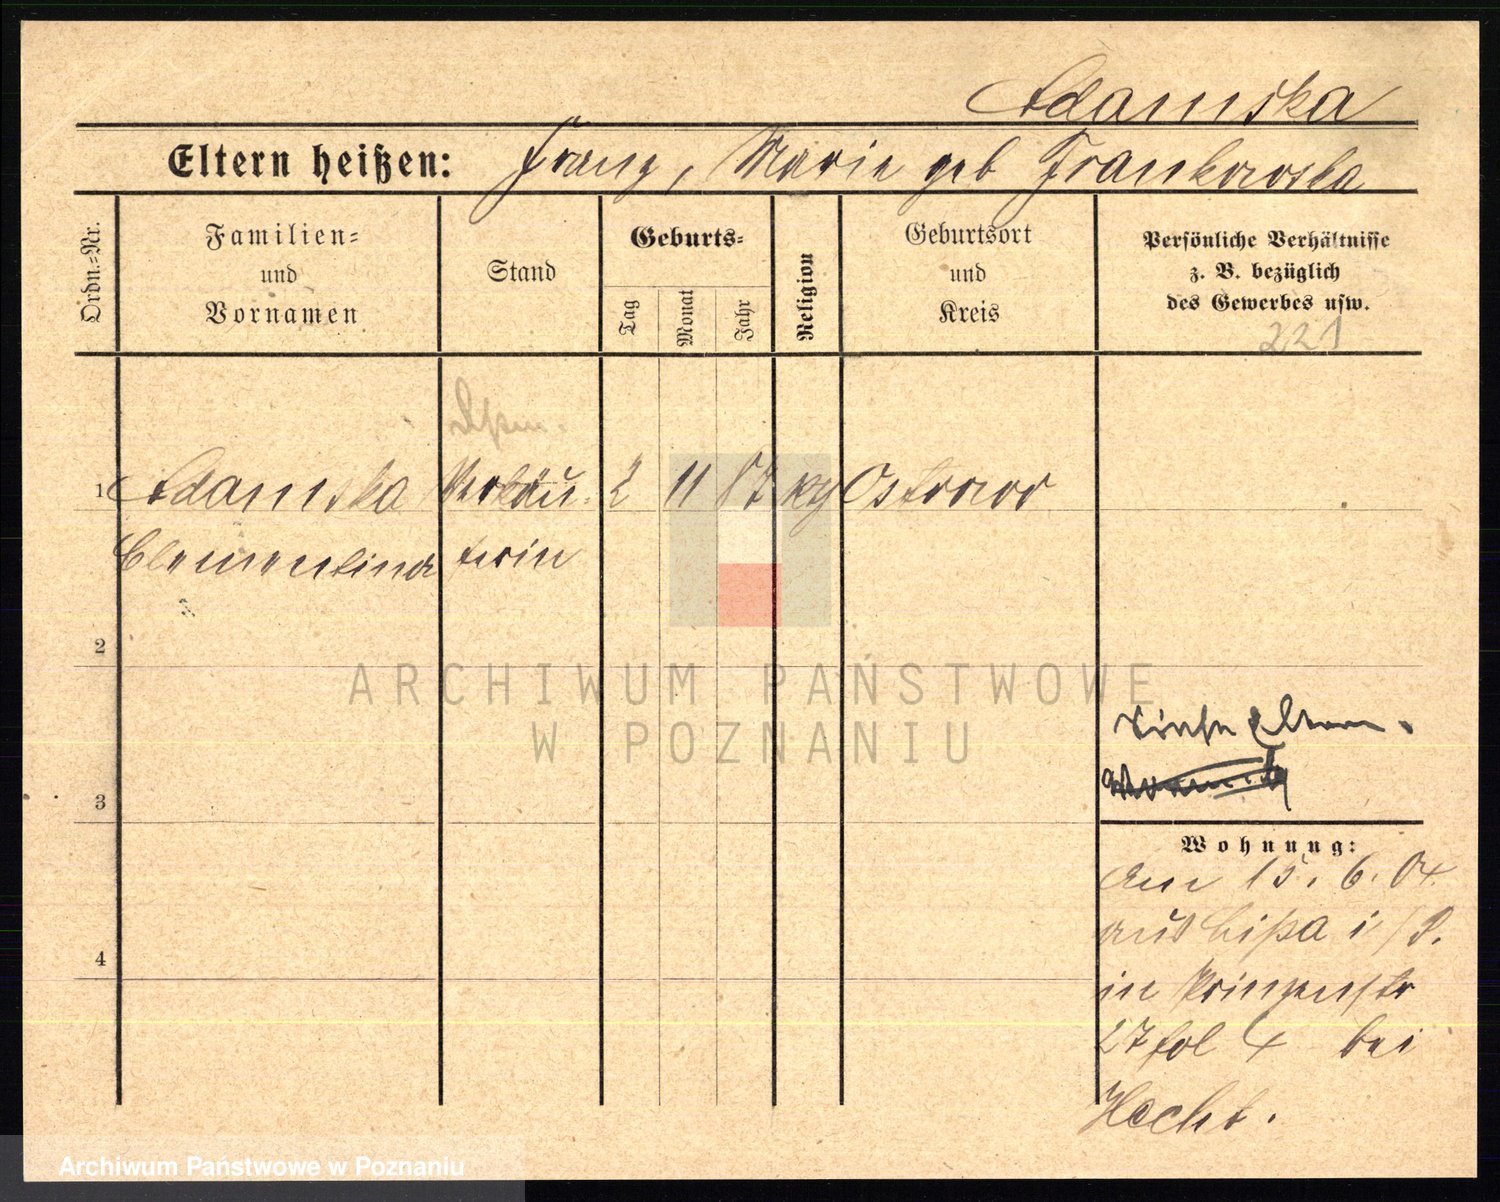 Adamska
Eltern heißen: Franz, Marie geb Frankowska
Ordn.=Nr.
Familien=
und
Vornamen
Stand
Geburts=
Tag
Monat
Jahr
Religion
Geburtsort
und
Kreis
Persönliche Verhältnisse
z. B. bezüglich
des Gewerbes usw.
221
1 Adamska Verkäu. 2 11 87 kg Ostrowo
Clementina ferin
2
ARCHIWUM PAŃSTWOWE
W POZNANIU
Siehe Eltern.
3
Wohnung:
Am 15. 6. 04.
aus Lißa i/P.
4
in Prinzenstr
27 fol 4 bei
Hecht.
Archiwum Państwowe w Poznaniu